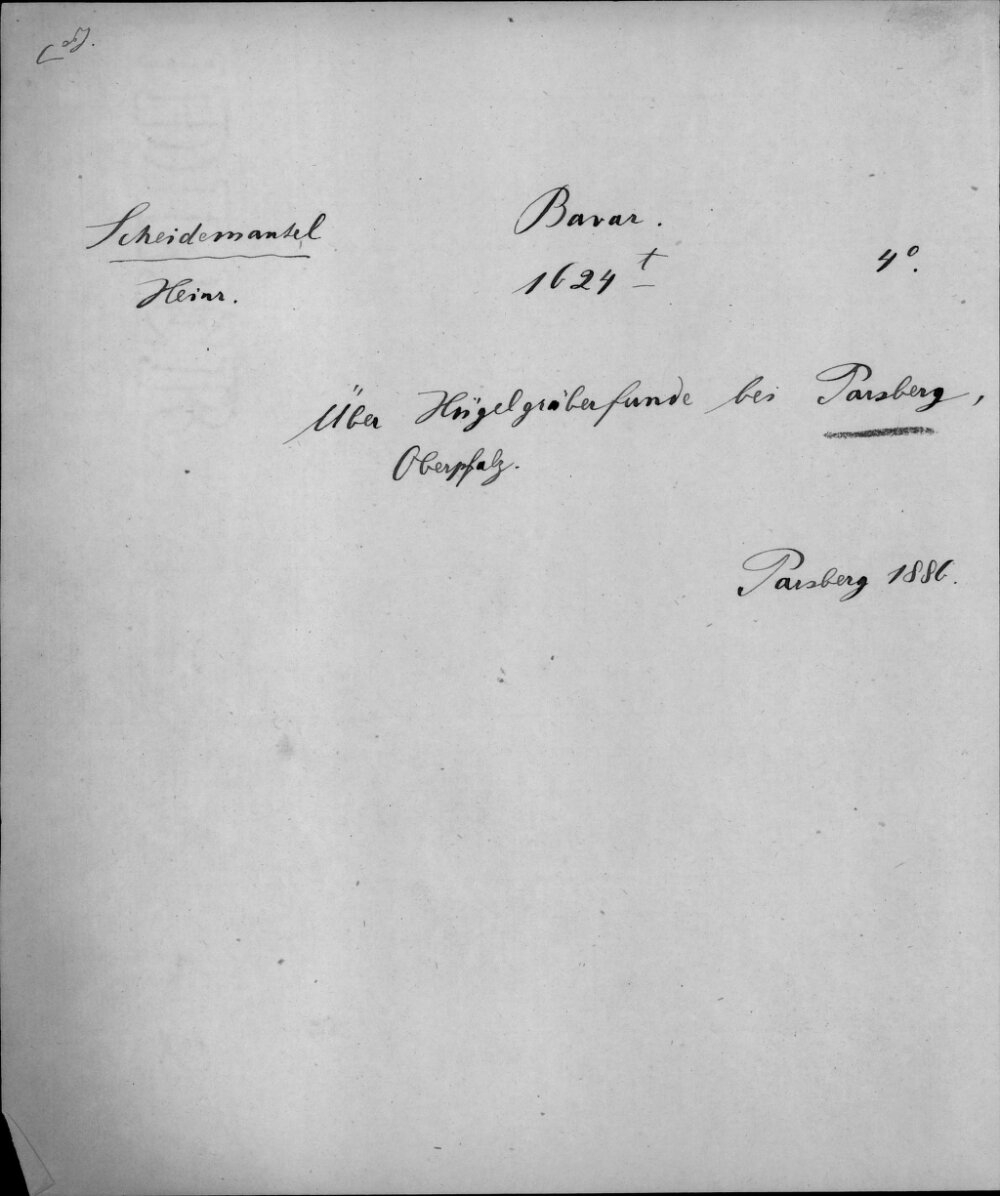 Scheidemantel
Heinr.
Bavar.
1624 t
4°.
Über Hügelgräberfunde bei Parsberg,
Oberpfalz.
Parsberg 1886.